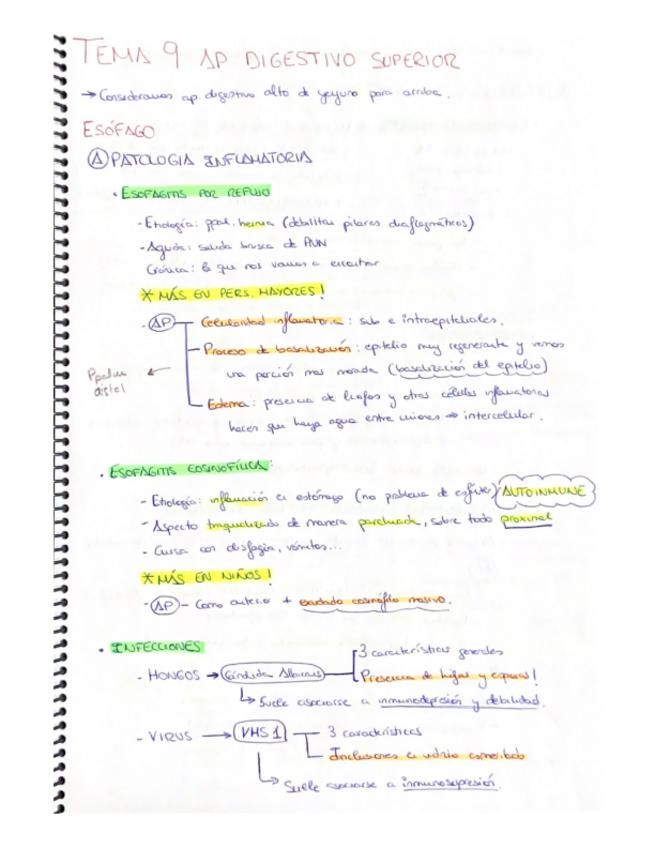 TEMA 9 AP DIGESTIVO SUPERIOR
→ Consideramos ap. digestivo alto de yeyuno para arriba.
ESÓFAGO
Ⓐ PATOLOGIA INFLAMATORIA
· ESOFAGITIS POR REFLUJO
- Etiología: ppal. hernia (debilitan pilares diafragmáticos)
- Aguda: salida brusca de
Crónica: lo que nos vamos a encontrar
* MÁS EN PERS. MAYORES!
- AP - Celularidad inflamatoria: sub e intraepiteliales.
- Proceso de basalización: epitelio muy regenerante y vemos
una porción mas morada (basalización del epitelio)
distal ←
- Edema: presencia de linfos y otras células inflamatorias
hacen que haya agua entre uniones ⇒ intercelular.
· ESOFAGITIS EOSINOFÍLICA:
- Etiología: inflamación en estómago (no problema de esfínter) AUTOINMUNE
- Aspecto traquealizado de manera parcheada, sobre todo proximal
- Cursa con disfagia, vómitos...
* MÁS EN NIÑOS!
- AP - Como anterior + exudado eosinófilo masivo.
· INFECCIONES
- HONGOS → Cándida Albicans - 3 características generales
- Presencia de hifas y esporas!
↳ Suele asociarse a inmunodepresión y debilidad.
- VIRUS → VHS 1 - 3 características
- Inclusiones en vidrio esmerilado
↳ Suele asociarse a inmunosupresión.